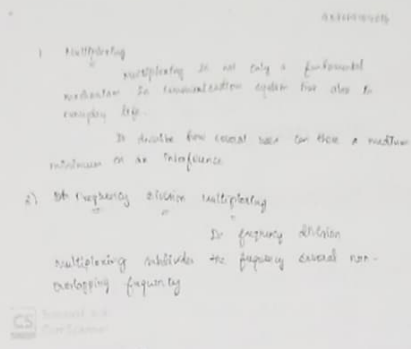 1 Multiplexing
Multiplexing is not only a fundamental
mechanism in communication system but also in
everyday life.
It describe how several users can share a medium
minimum on an interference
2) Frequency Division Multiplexing
In frequency division
multiplexing subdivides the frequency several non-
overlapping frequency
CS